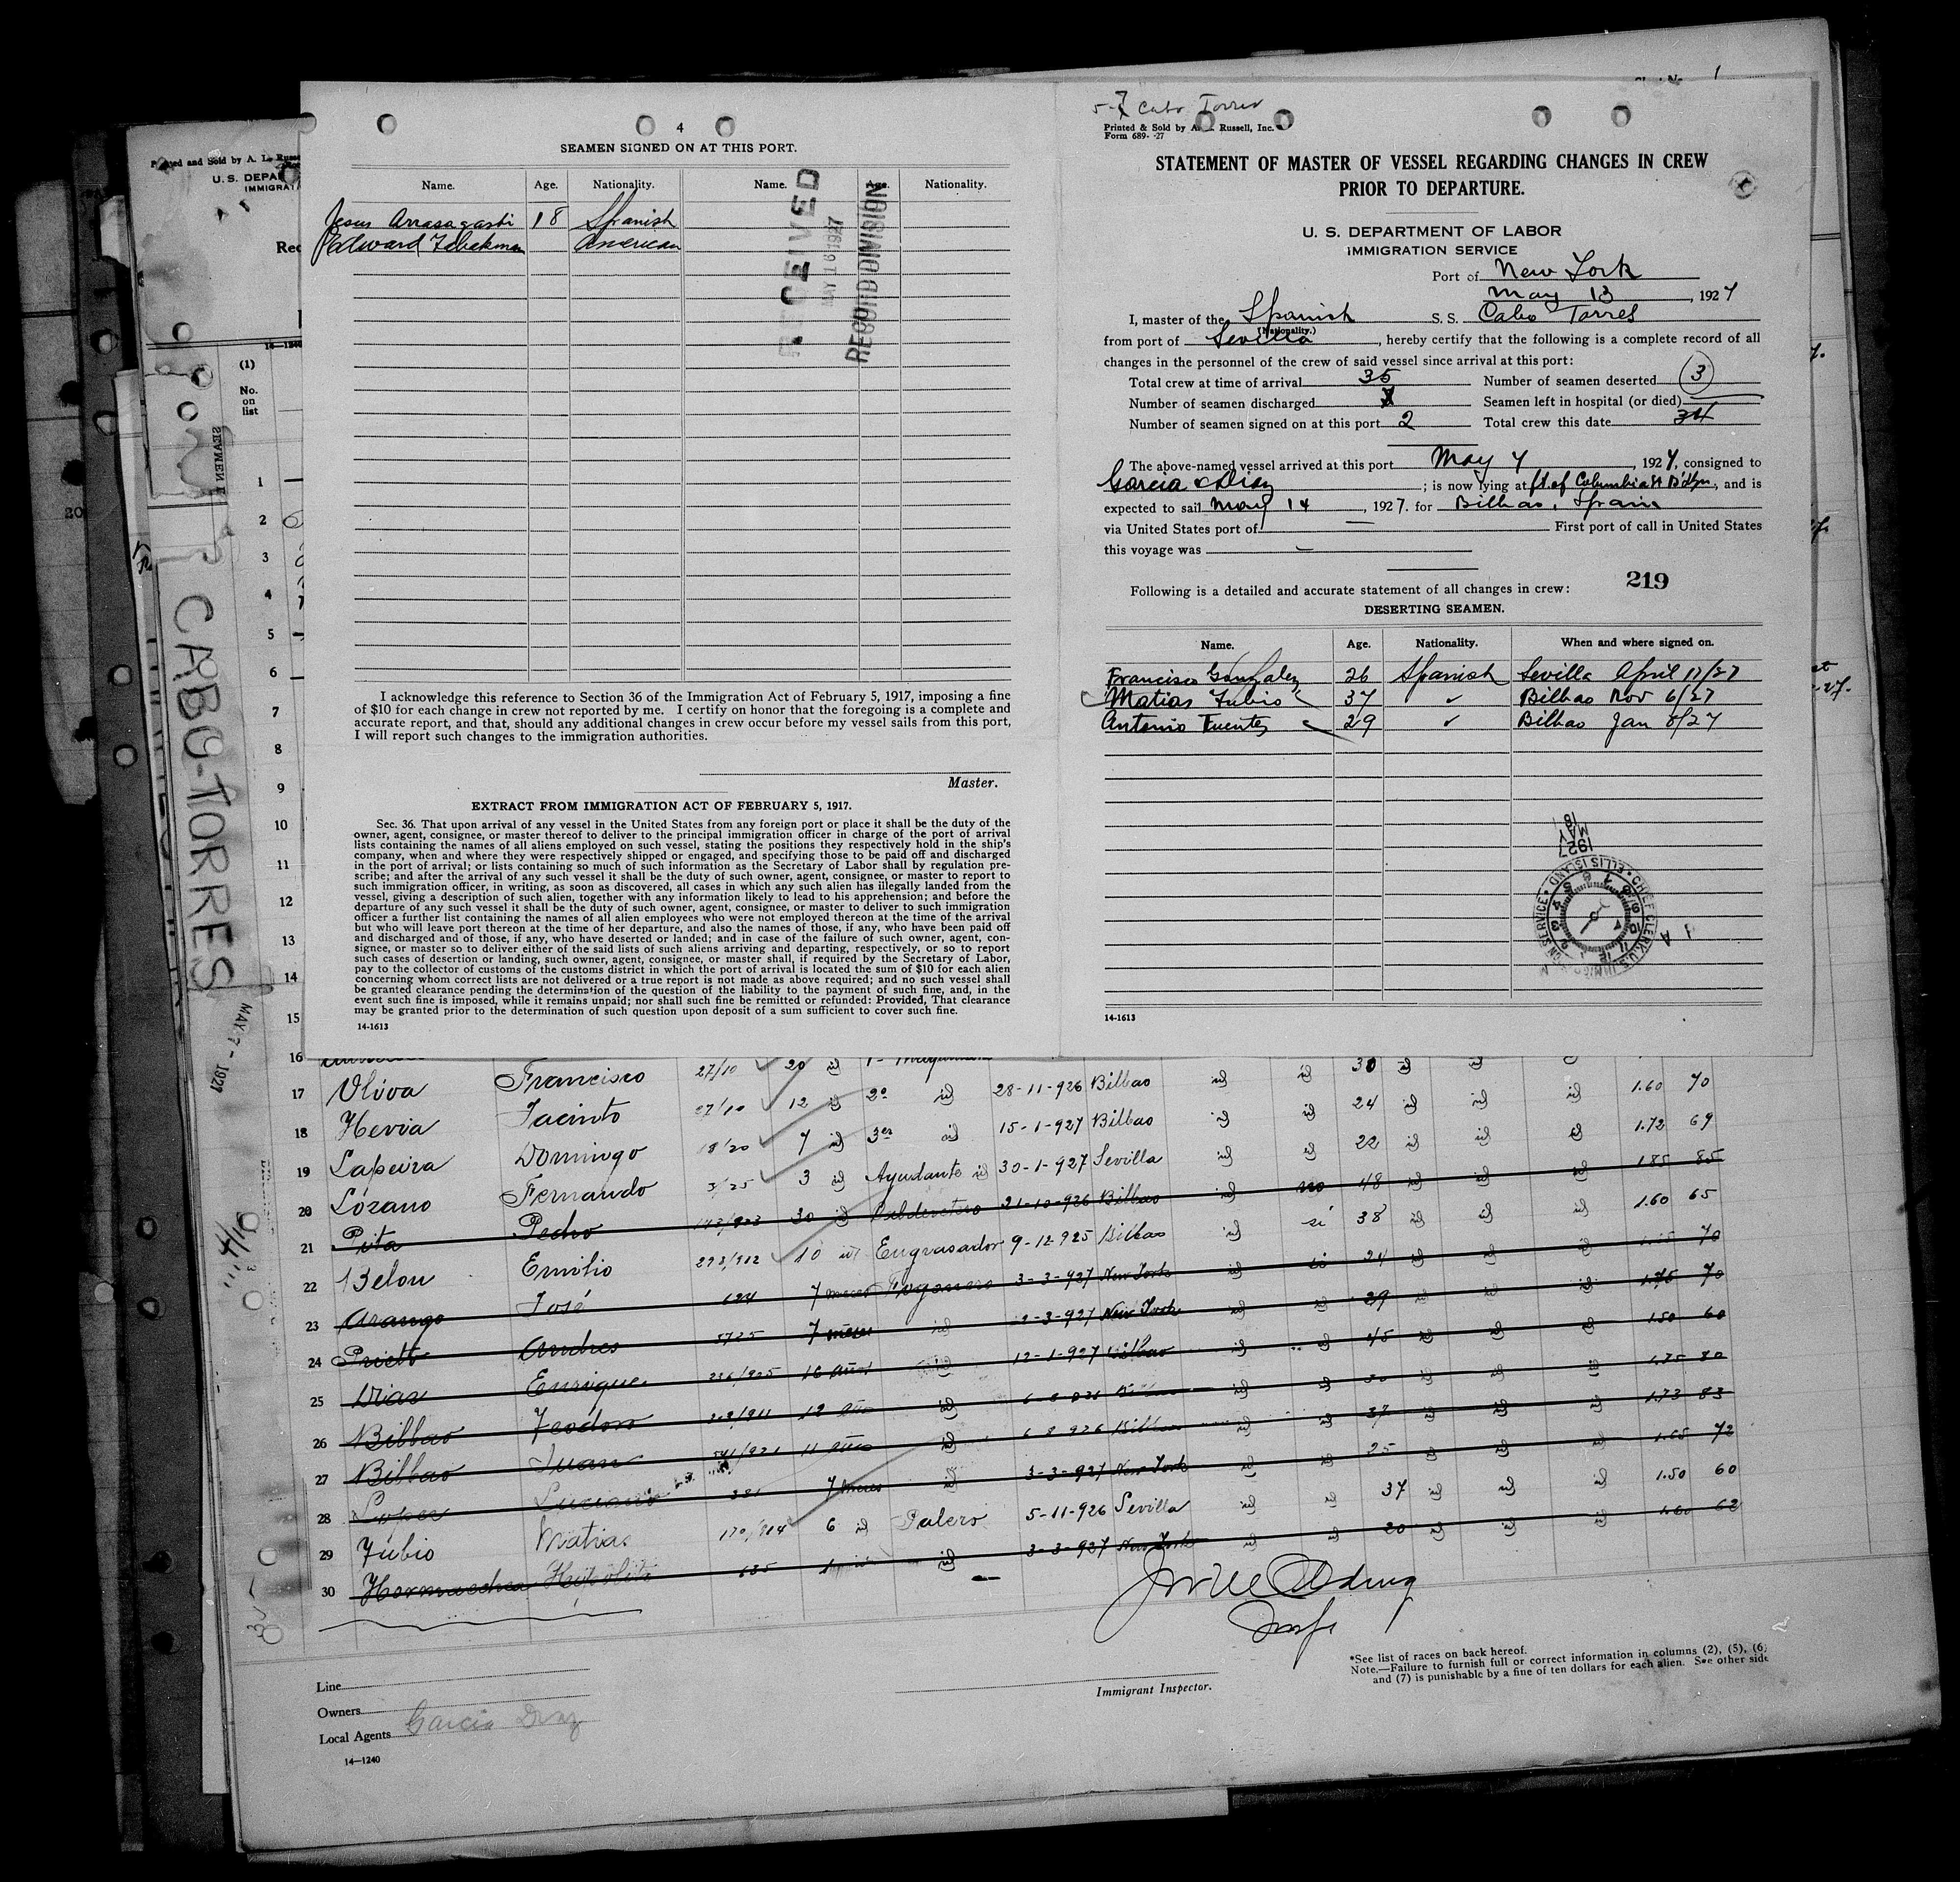 4
SEAMEN SIGNED ON AT THIS PORT.
Name. Age. Nationality. Name. Age. Nationality.
Jesus Arrasagasti 18 Spanish
Edward American
RECEIVED
MAY 16 1927
RECORD DIVISION
I acknowledge this reference to Section 36 of the Immigration Act of February 5, 1917, imposing a fine
of $10 for each change in crew not reported by me. I certify on honor that the foregoing is a complete and
accurate report, and that, should any additional changes in crew occur before my vessel sails from this port,
I will report such changes to the immigration authorities.
Master.
EXTRACT FROM IMMIGRATION ACT OF FEBRUARY 5, 1917.
Sec. 36. That upon arrival of any vessel in the United States from any foreign port or place it shall be the duty of the
owner, agent, consignee, or master thereof to deliver to the principal immigration officer in charge of the port of arrival
lists containing the names of all aliens employed on such vessel, stating the positions they respectively hold in the ship's
company, when and where they were respectively shipped or engaged, and specifying those to be paid off and discharged
in the port of arrival; or lists containing so much of such information as the Secretary of Labor shall by regulation pre-
scribe; and after the arrival of any such vessel it shall be the duty of such owner, agent, consignee, or master to report to
such immigration officer, in writing, as soon as discovered, all cases in which any such alien has illegally landed from the
vessel, giving a description of such alien, together with any information likely to lead to his apprehension; and before the
departure of any such vessel it shall be the duty of such owner, agent, consignee, or master to deliver to such immigration
officer a further list containing the names of all alien employees who were not employed thereon at the time of the arrival
but who will leave port thereon at the time of her departure, and also the names of those, if any, who have been paid off
and discharged and of those, if any, who have deserted or landed; and in case of the failure of such owner, agent, con-
signee, or master so to deliver either of the said lists of such aliens arriving and departing, respectively, or so to report
such cases of desertion or landing, such owner, agent, consignee, or master shall, if required by the Secretary of Labor,
pay to the collector of customs of the customs district in which the port of arrival is located the sum of $10 for each alien
concerning whom correct lists are not delivered or a true report is not made as above required; and no such vessel shall
be granted clearance pending the determination of the question of the liability to the payment of such fine, and, in the
event such fine is imposed, while it remains unpaid; nor shall such fine be remitted or refunded: Provided, That clearance
may be granted prior to the determination of such question upon deposit of a sum sufficient to cover such fine.
14-1613
5-7 Cabo Torres
Printed & Sold by A. Russell, Inc.
Form 689- -27
STATEMENT OF MASTER OF VESSEL REGARDING CHANGES IN CREW
PRIOR TO DEPARTURE.
U. S. DEPARTMENT OF LABOR
IMMIGRATION SERVICE
Port of New York
May 13, 1927
I, master of the Spanish S. S. Cabo Torres
(Nationality.)
from port of Sevilla, hereby certify that the following is a complete record of all
changes in the personnel of the crew of said vessel since arrival at this port:
Total crew at time of arrival 35 Number of seamen deserted 3
Number of seamen discharged Seamen left in hospital (or died)
Number of seamen signed on at this port 2 Total crew this date 34
The above-named vessel arrived at this port May 7, 1927, consigned to
Garcia & Diaz; is now lying at ft of Columbia St Bklyn, and is
expected to sail May 14, 1927. for Bilbao, Spain
via United States port of — First port of call in United States
this voyage was
219
Following is a detailed and accurate statement of all changes in crew:
DESERTING SEAMEN.
Name. Age. Nationality. When and where signed on.
Francisco Gonzalez 26 Spanish Sevilla April 17/27
Matias Tubio 37 ✓ Bilbao Nov 6/27
Antonio Fuentes 29 ✓ Bilbao Jan 8/27
1927 MAY 18
CHIEF CLERK U.S. IMMIGRATION SERVICE ELLIS ISLAND
14-1613
Printed and Sold by A. L. Russe
U. S. DEPA
IMMIGRATI
Rec
14-1240
(1)
No.
on
list
SEAMEN
CABO-TORRES
MAY 7 - 1927
1
2
3
4
5
6
7
8
9
10
11
12
13
14
15
16
17 Oliva Francisco 27/10 20 id 28-11-926 Bilbao id id 30 id id id 1.60 70
18 Hevia Jacinto 27/10 12 id 2º id 15-1-927 Bilbao id id 24 id id id 1.72 69
19 Lapeira Domingo 18/20 7 id 3er id 30-1-927 Sevilla id id 22 id id id 1.85 85
20 Lozano Fernando 3/25 3 id Ayudante id
21 Pita Pedro 30 id 21-10-926 Bilbao id no 48 id id id 1.60 65
22 Belon Emilio 293/912 10 id Engrasador 9-12-925 Bilbao id si 38 id id id
23 Arango José 624 7 meses Fogonero 3-3-927 New York id id 24 id id id 70
24 Prieto Andres 5725 7 meses id 3-927 New York id id 29 id id id 1.75 70
25 Dias Enrique 10 años id 12-1-927 Bilbao id id 45 id id id 1.50 60
26 Bilbao Teodoro 12 id id id id id id 1.75 80
27 Bilbao Juan 541/921 11 años id 6-8-926 Bilbao id id 37 id id id 1.73 83
28 Lopez Luciano 7 meses id 3-3-927 New York id id 25 id id id 1.65 72
29 Tubio Matias 170/914 6 id Palero 5-11-926 Sevilla id id 37 id id id 1.50 60
30 Hormaechea Hipolito 635 id 3-3-927 New York id id 20 id id id 1.60 62
Line
Owners
Local Agents Garcia Diaz
14—1240
Immigrant Inspector.
*See list of races on back hereof.
Note.—Failure to furnish full or correct information in columns (2), (5), (6)
and (7) is punishable by a fine of ten dollars for each alien. See other side